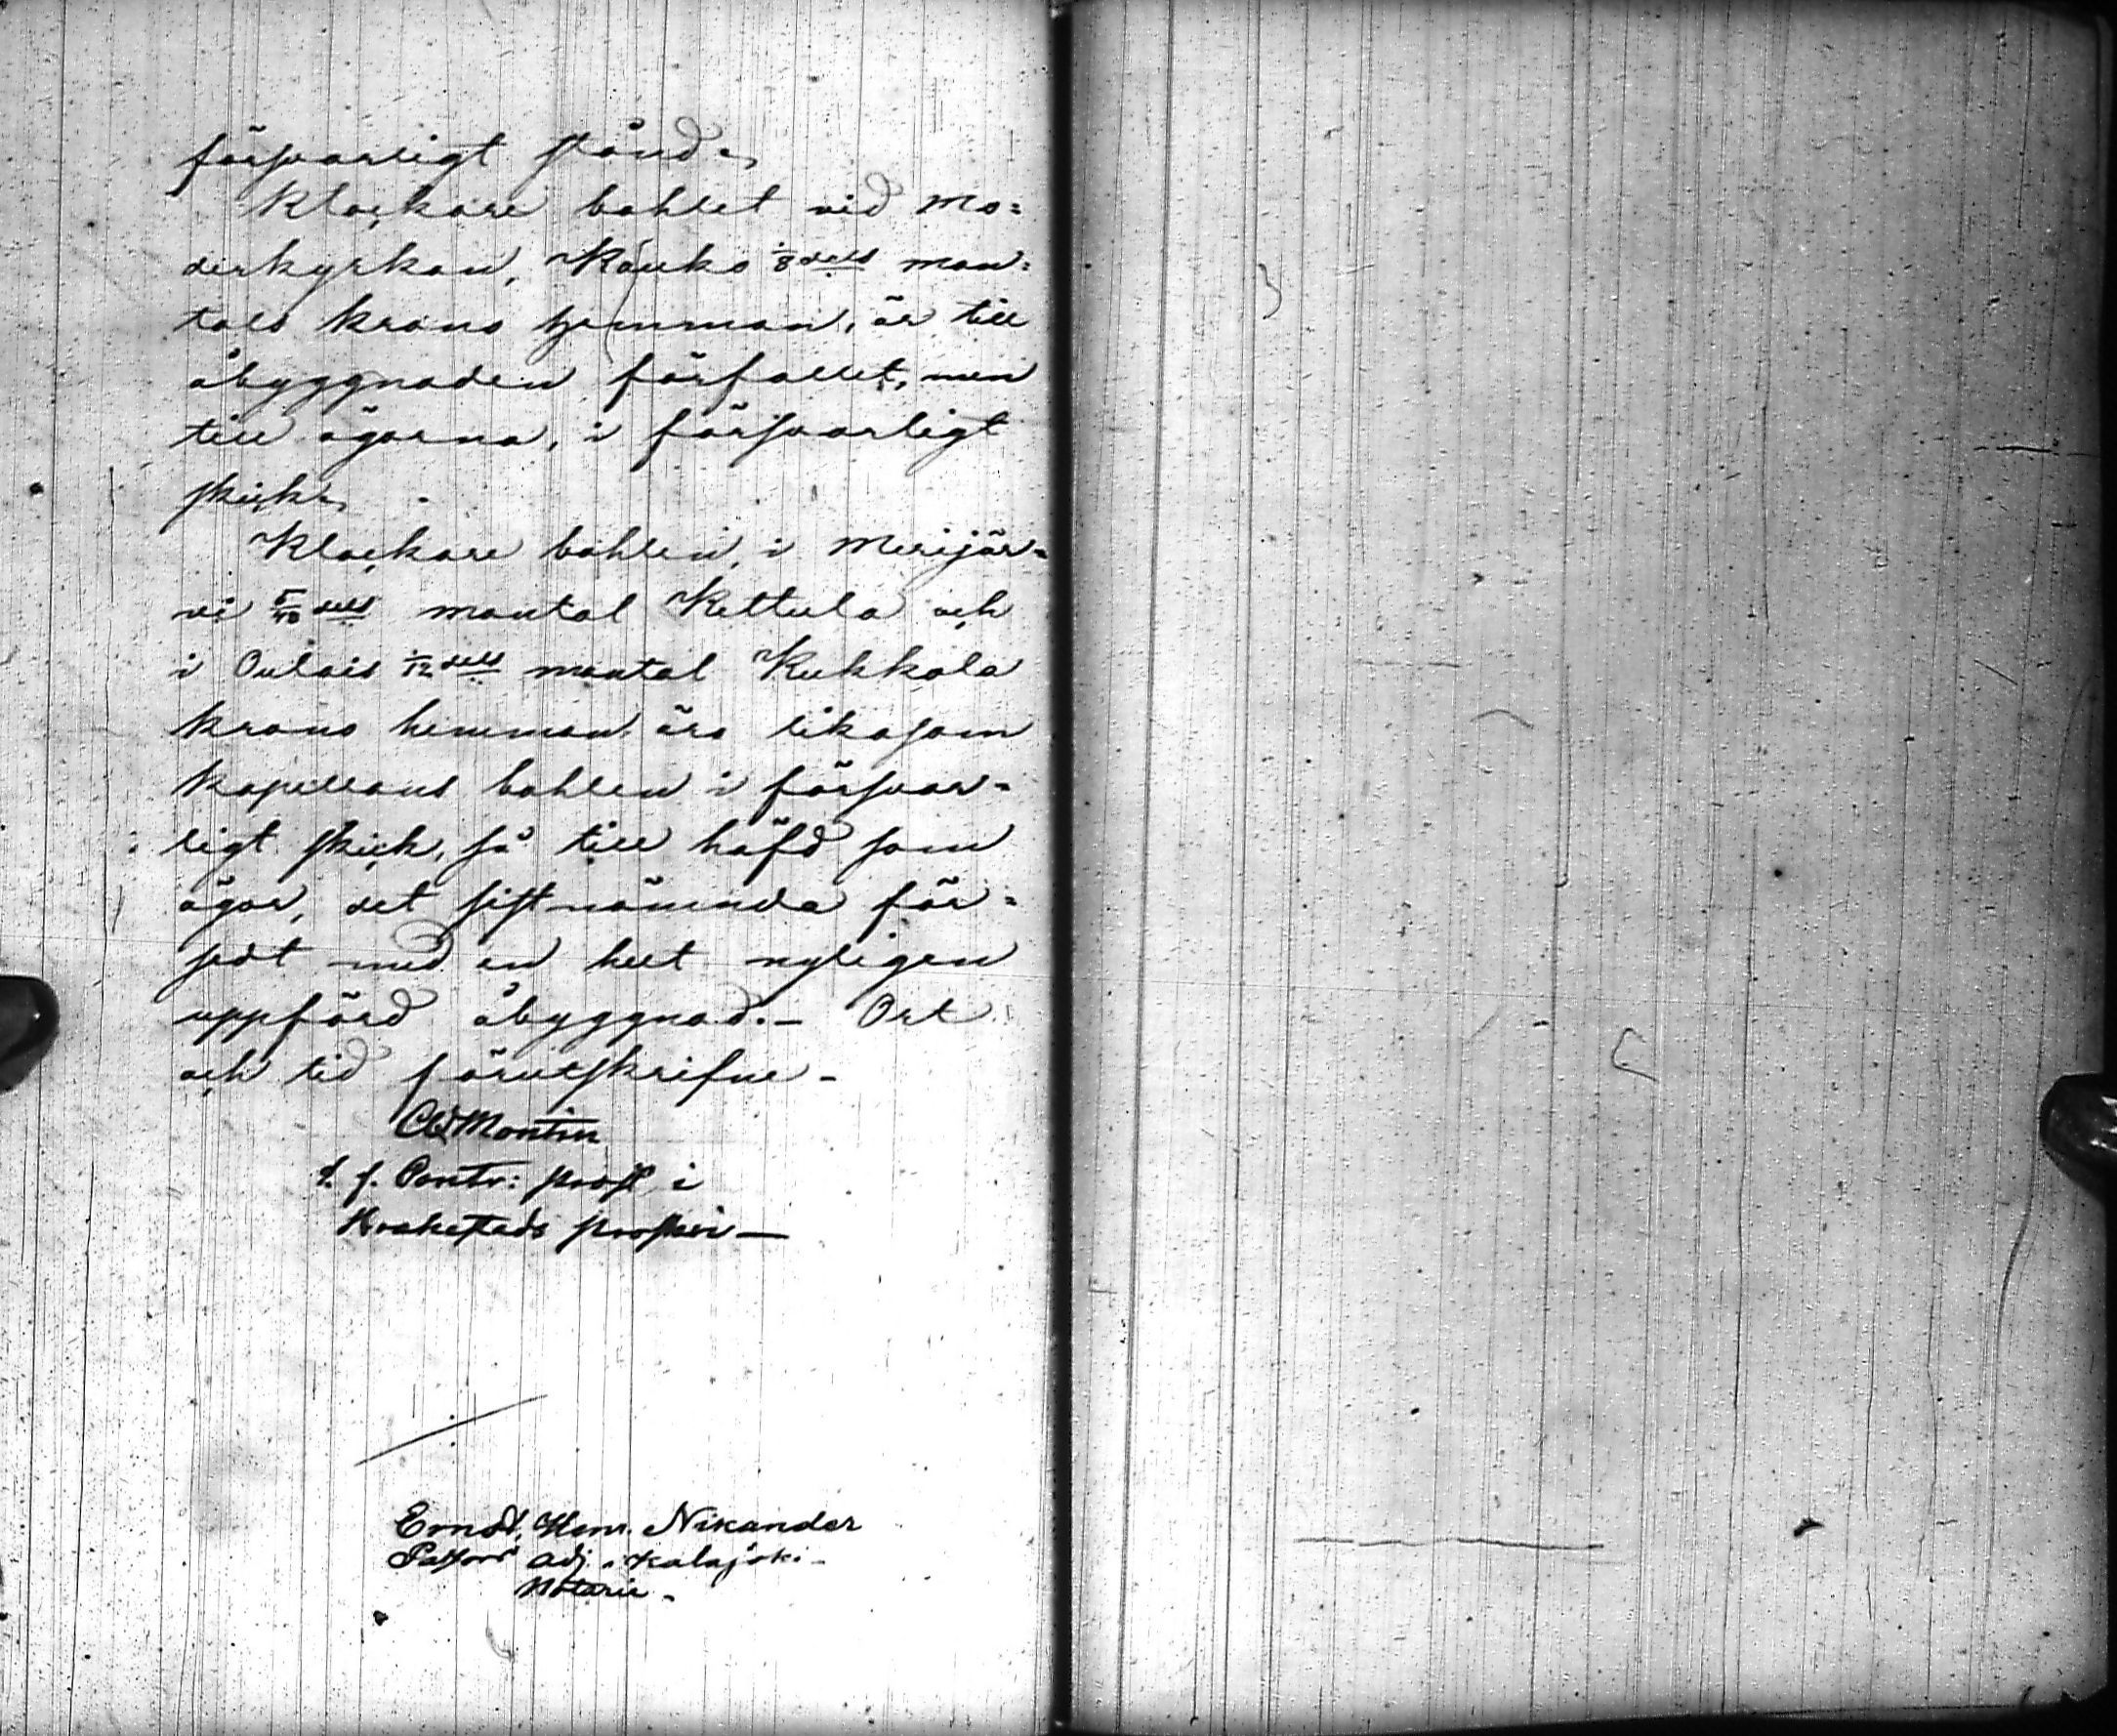 försvarligt stånd.
Klockare bohlet vid Mo=
derkyrkan, Kauko 1/8dels man=
tals krono hemman, är till
åbyggnaden förfallet, men
till ägorna, i försvarligt
skick.
Klockare bohlen, i Merijär=
vi 5/48 dels mantal Kettula och
i Oulais 1/12 dels mantal Kukkola
krono hemman äro likasom
kapellans bohlen i försvar=
ligt skick, så till häfd som
ägor, det sistnämnda för=
sedt med en helt nyligen
uppförd åbyggnad.— Ort
och tid förutskrifne—
Montin
t. f. Contr: prost i
Brahestads prosteri—
Ernst, Henr. Nikander
Pastors adj. i Kalajoki—
Notarie—